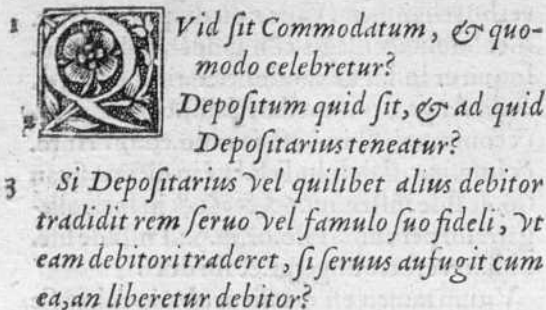 1 QVid ſit Commodatum, & quo-
modo celebretur?
Depoſitum quid ſit, & ad quid
Depoſitarius teneatur?
3 Si Depoſitarius vel quilibet alius debitor
tradidit rem ſeruo vel famulo ſuo fideli, vt
eam debitori traderet, ſi ſeruus aufugit cum
ea, an liberetur debitor?